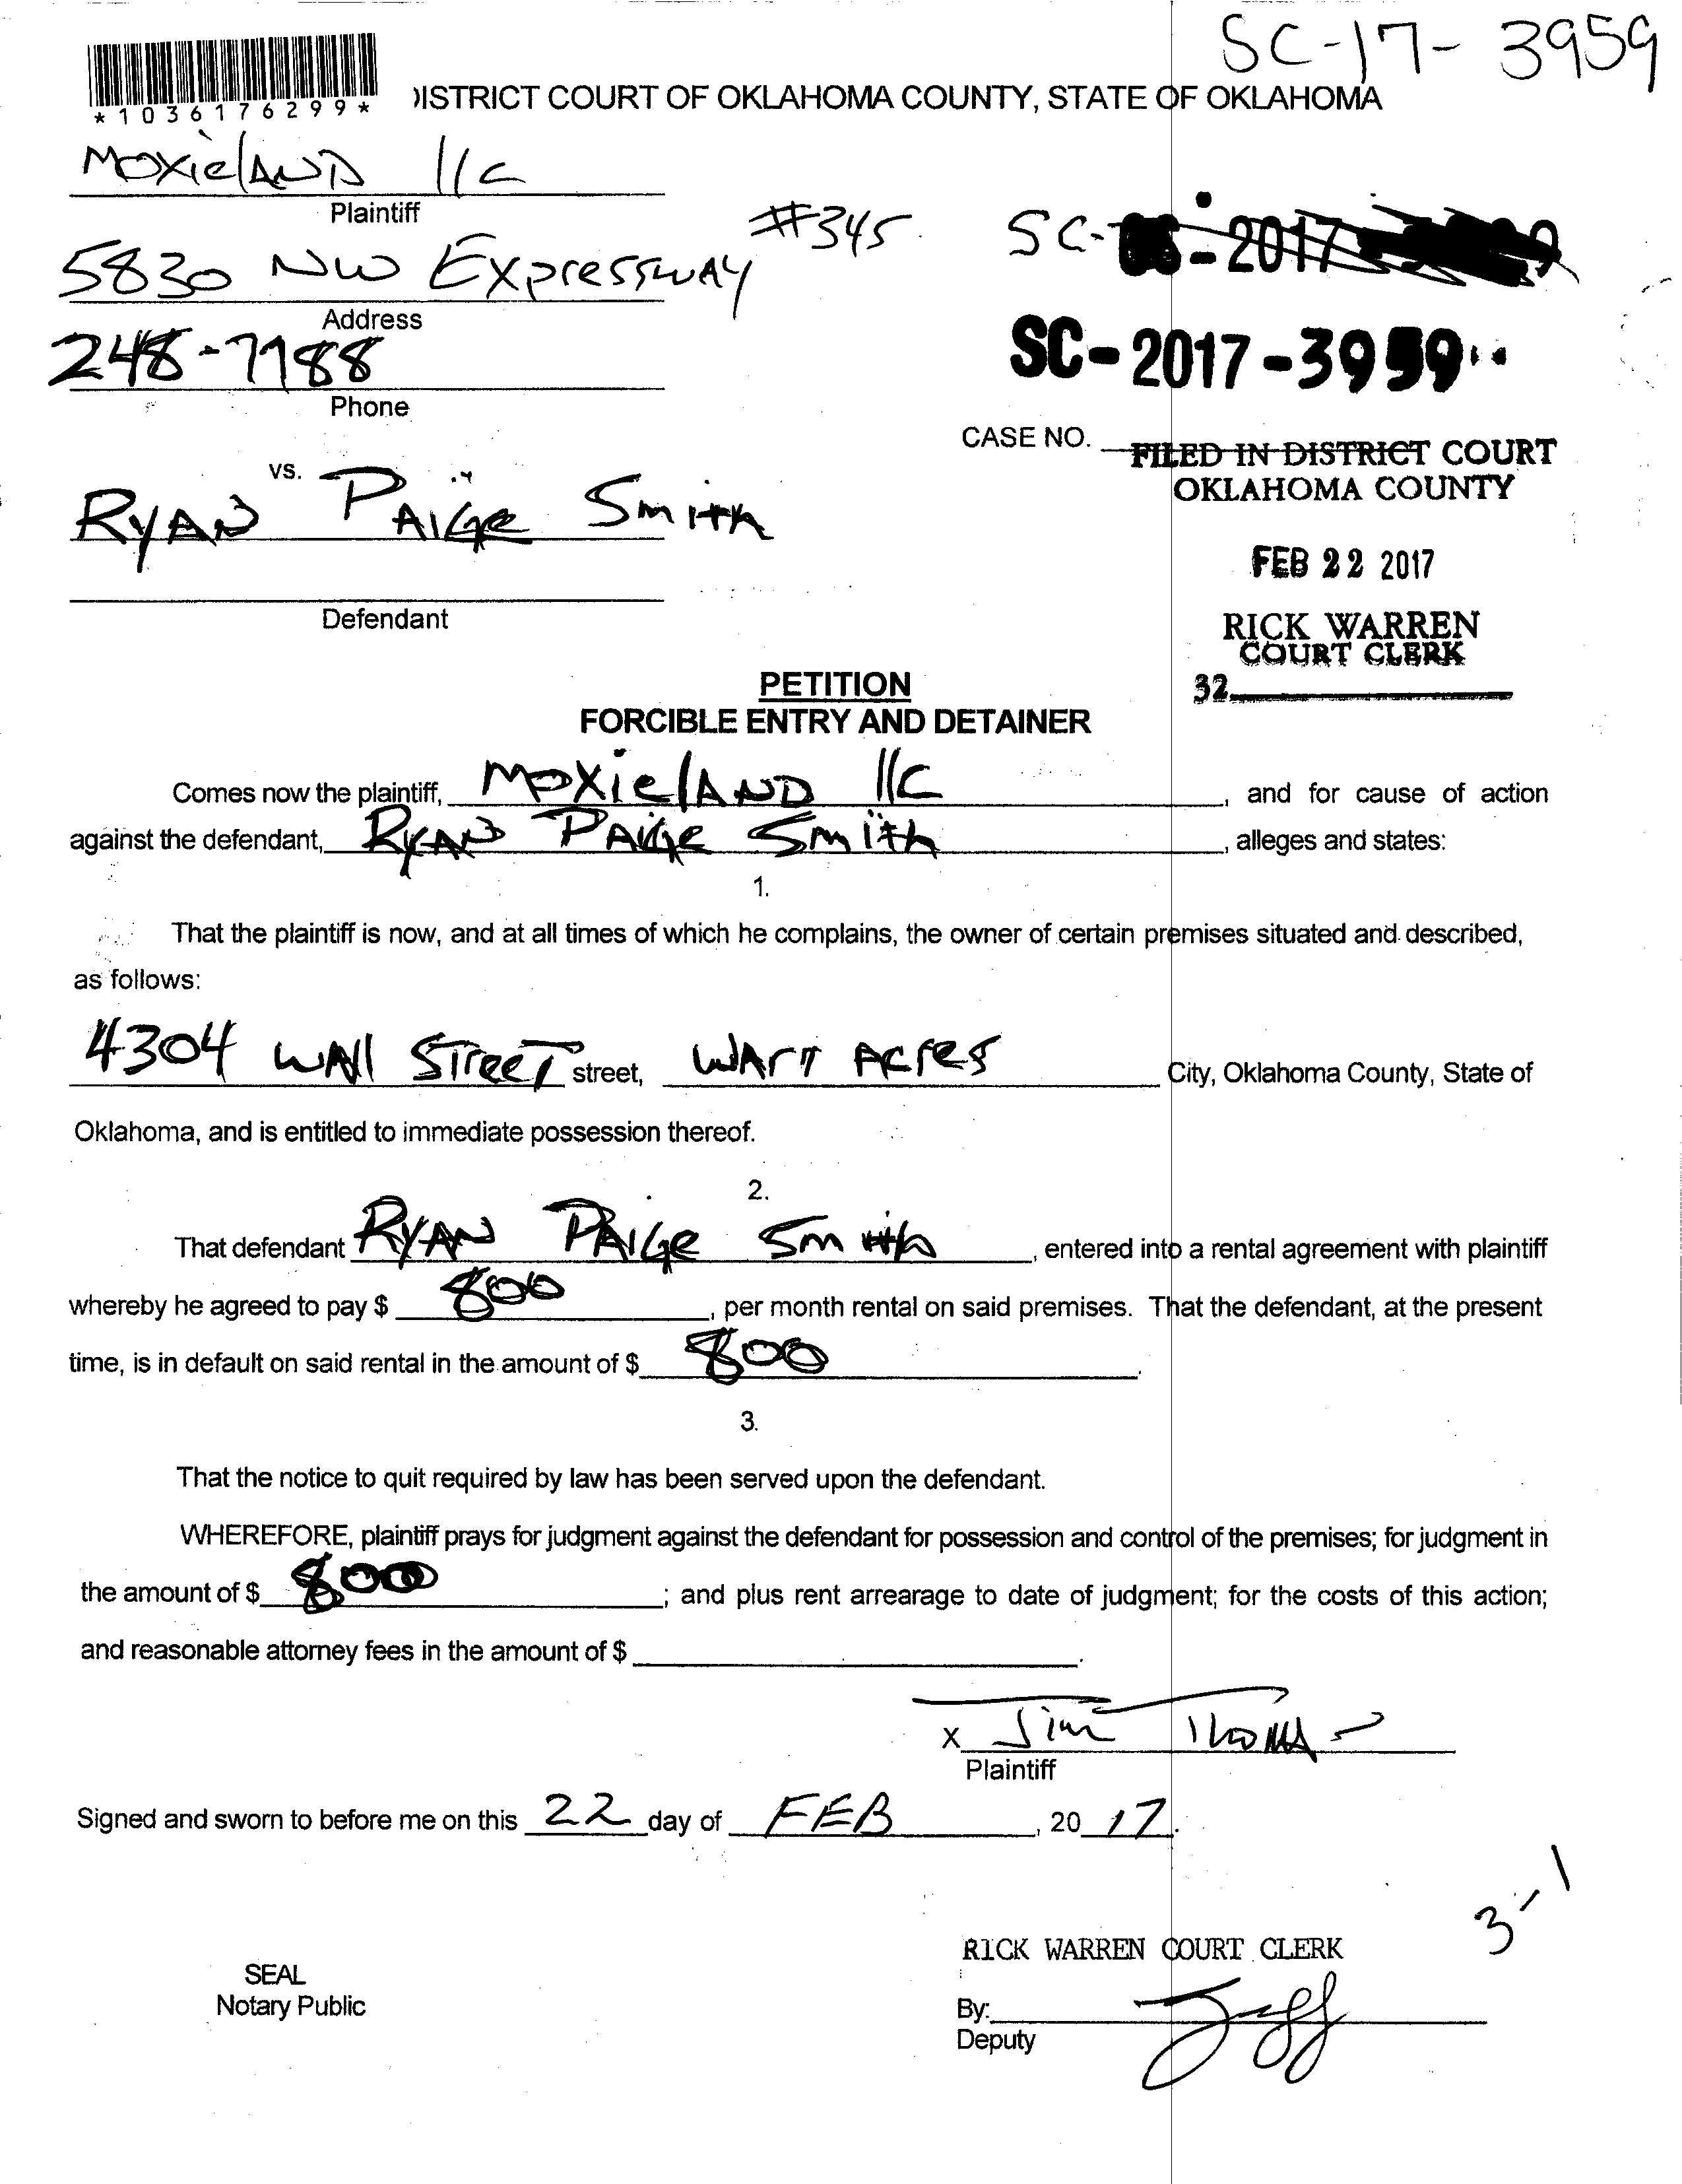 SC-17-3959
*1036176299*
DISTRICT COURT OF OKLAHOMA COUNTY, STATE OF OKLAHOMA
MOXielAND llC
Plaintiff
#345
5830 NW EXpressWAY
SC- -2017
Address
248-7188
SC-2017-3959
Phone
CASE NO.
FILED IN DISTRICT COURT
OKLAHOMA COUNTY
vs.
RYAN PAIGE Smith
FEB 22 2017
Defendant
RICK WARREN
COURT CLERK
32
PETITION
FORCIBLE ENTRY AND DETAINER
Comes now the plaintiff, MOXielAND llC, and for cause of action
against the defendant, RYAN PAIGE Smith, alleges and states:
1.
That the plaintiff is now, and at all times of which he complains, the owner of certain premises situated and described,
as follows:
4304 WAll STreeT street, WArr Acres City, Oklahoma County, State of
Oklahoma, and is entitled to immediate possession thereof.
2.
That defendant RYAN PAIGE Smith, entered into a rental agreement with plaintiff
whereby he agreed to pay $ 800, per month rental on said premises. That the defendant, at the present
time, is in default on said rental in the amount of $ 800.
3.
That the notice to quit required by law has been served upon the defendant.
WHEREFORE, plaintiff prays for judgment against the defendant for possession and control of the premises; for judgment in
the amount of $ 800; and plus rent arrearage to date of judgment; for the costs of this action;
and reasonable attorney fees in the amount of $.
X Jim
Plaintiff
Signed and sworn to before me on this 22 day of FEB, 20 17.
3-1
RICK WARREN COURT CLERK
SEAL
Notary Public
By:
Deputy